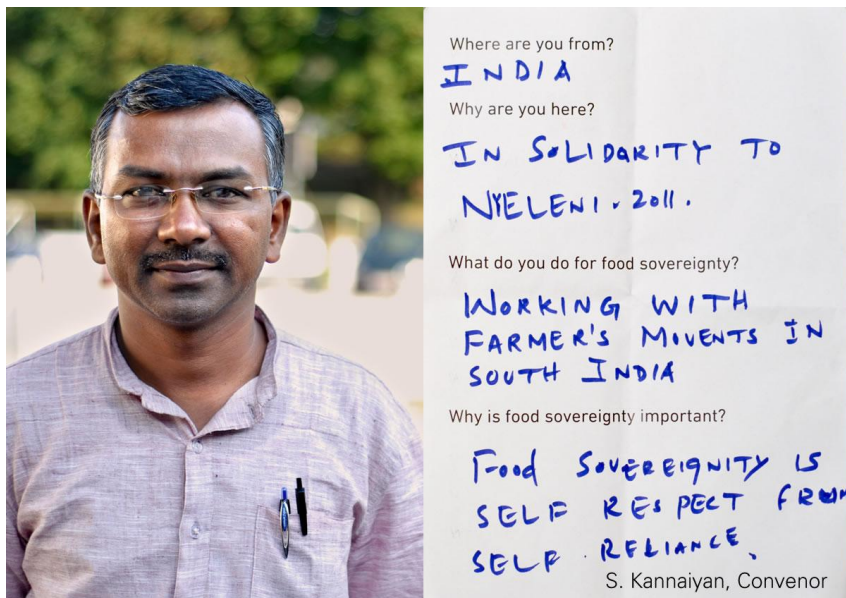 Where are you from?
INDIA
Why are you here?
IN SOLIDARITY TO
NYELENI. 2011.
What do you do for food sovereignty?
WORKING WITH
FARMER'S MOVENTS IN
SOUTH INDIA
Why is food sovereignty important?
Food SOVEREIGNITY IS
SELF RESPECT FROM
SELF. RELIANCE.
S. Kannaiyan, Convenor